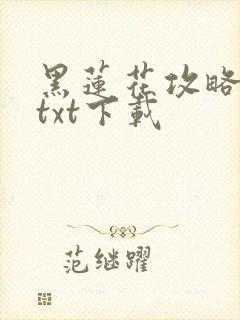 黑蓮花攻略
txt下載
范继躍